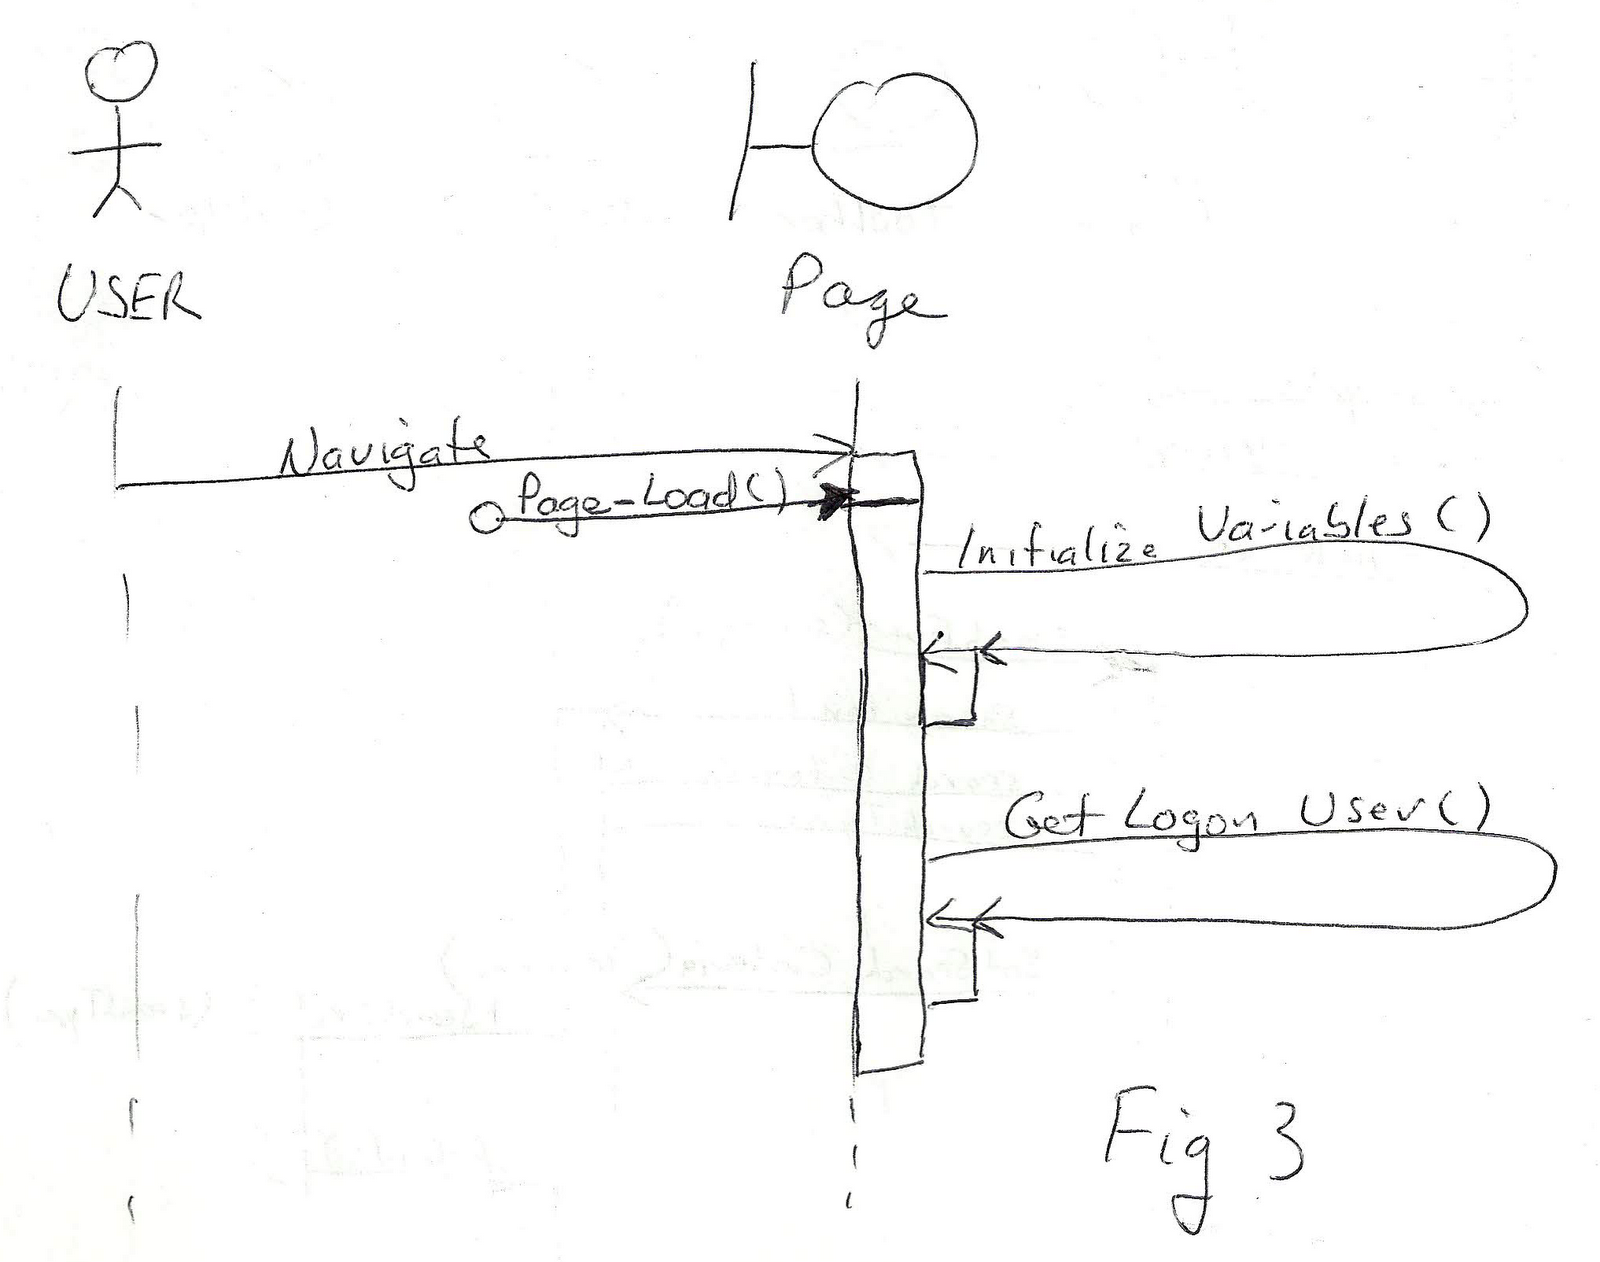 USER
Page
Navigate
Page-Load()
Initialize Variables()
Get Logon User()
Fig 3